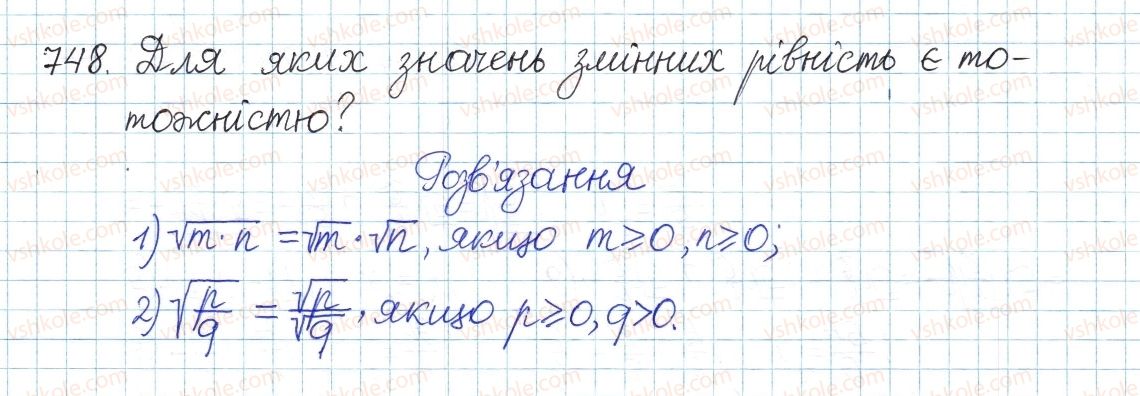 748. Для яких значень змінних рівність є то-
тожністю?
Розв'язання
1) √m·n = √m · √n, якщо m ⩾ 0, n ⩾ 0;
2) √(p/q) = √p/√q, якщо p ⩾ 0, q > 0.